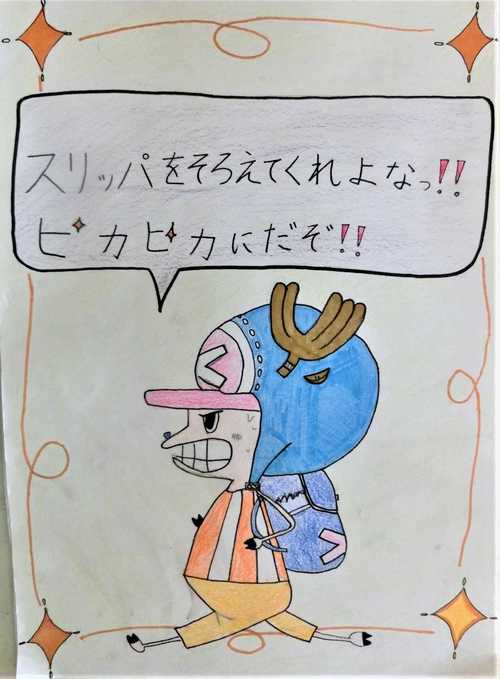 スリッパをそろえてくれよなっ!!
ピカピカにだぞ!!